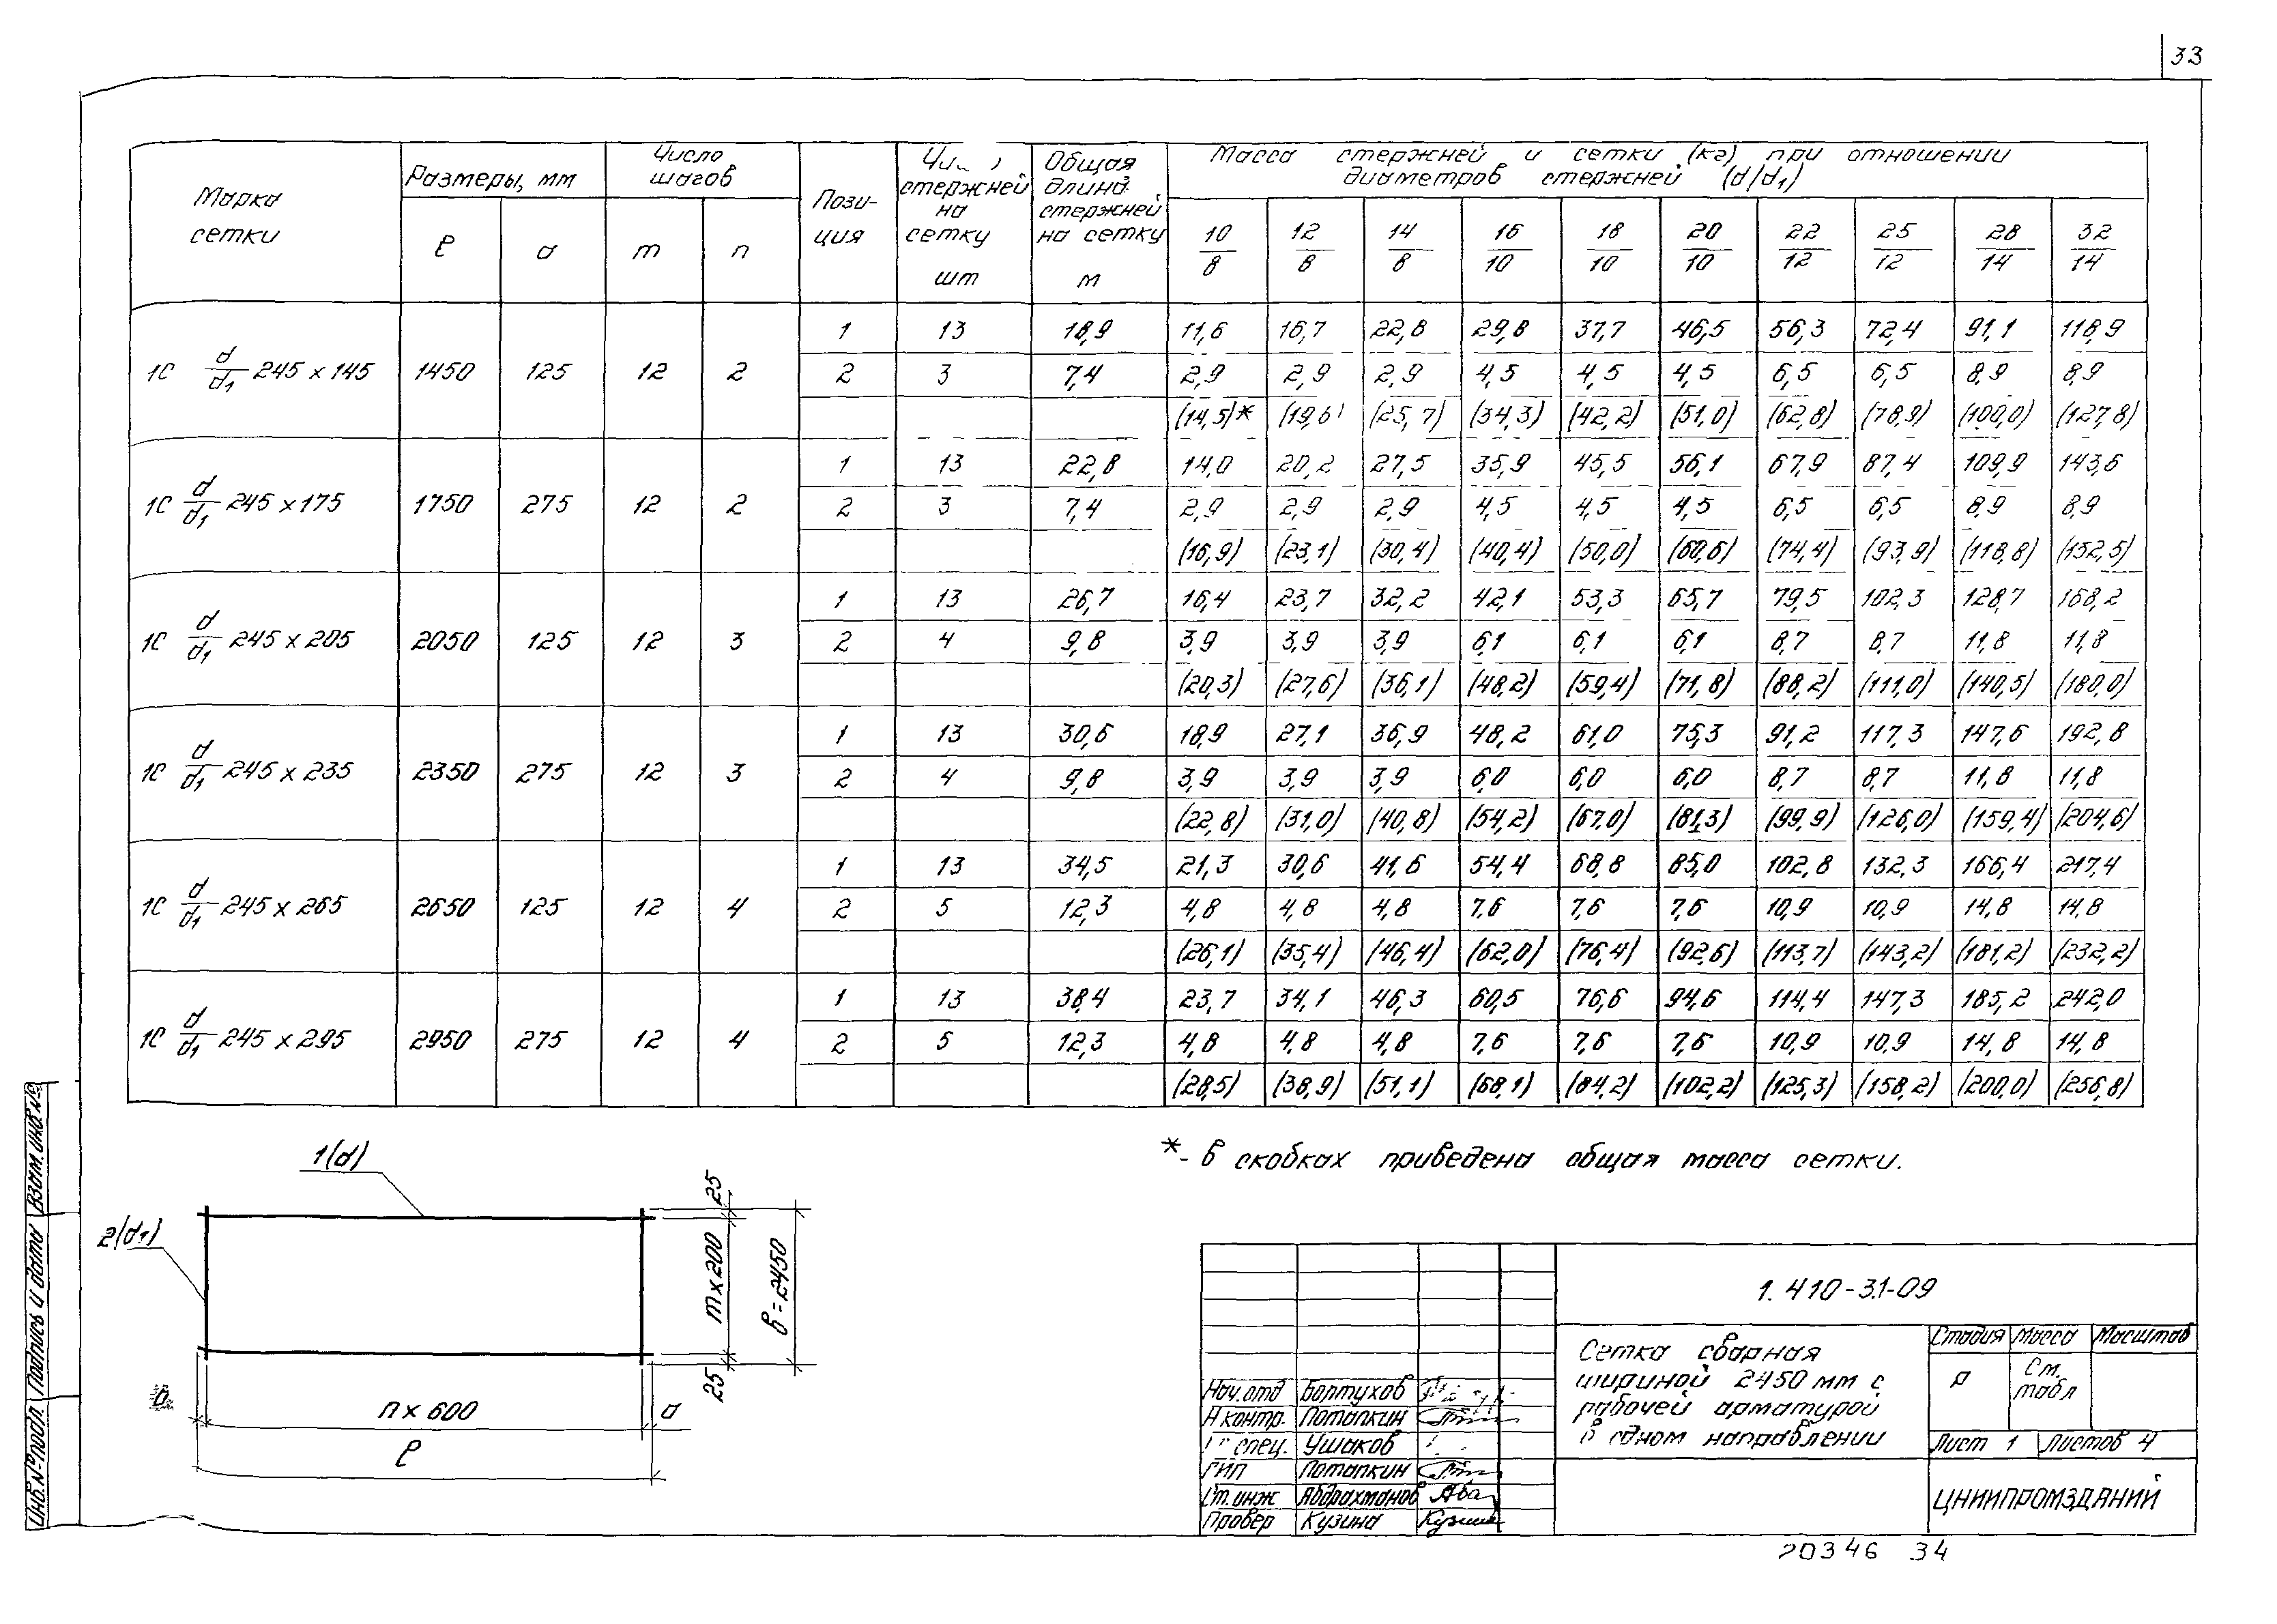 33
Марка сетки | Размеры, мм | Число шагов | Пози-ция | стержней на сетку шт | Общая длина стержней на сетку м | Масса стержней и сетки (кг) при отношении диаметров стержней (d/d1)
ℓ | a | m | n | 10/8 | 12/8 | 14/8 | 16/10 | 18/10 | 20/10 | 22/12 | 25/12 | 28/14 | 32/14
1С d/d1 245 x 145 | 1450 | 125 | 12 | 2
1 | 13 | 18,9 | 11,6 | 16,7 | 22,8 | 29,8 | 37,7 | 46,5 | 56,3 | 72,4 | 91,1 | 118,9
2 | 3 | 7,4 | 2,9 | 2,9 | 2,9 | 4,5 | 4,5 | 4,5 | 6,5 | 6,5 | 8,9 | 8,9
(14,5)* | (19,6) | (25,7) | (34,3) | (42,2) | (51,0) | (62,8) | (78,9) | (100,0) | (127,8)
1С d/d1 245 x 175 | 1750 | 275 | 12 | 2
1 | 13 | 22,8 | 14,0 | 20,2 | 27,5 | 35,9 | 45,5 | 56,1 | 67,9 | 87,4 | 109,9 | 143,6
2 | 3 | 7,4 | 2,9 | 2,9 | 2,9 | 4,5 | 4,5 | 4,5 | 6,5 | 6,5 | 8,9 | 8,9
(16,9) | (23,1) | (30,4) | (40,4) | (50,0) | (60,6) | (74,4) | (93,9) | (118,8) | (152,5)
1С d/d1 245 x 205 | 2050 | 125 | 12 | 3
1 | 13 | 26,7 | 16,4 | 23,7 | 32,2 | 42,1 | 53,3 | 65,7 | 79,5 | 102,3 | 128,7 | 168,2
2 | 4 | 9,8 | 3,9 | 3,9 | 3,9 | 6,1 | 6,1 | 6,1 | 8,7 | 8,7 | 11,8 | 11,8
(20,3) | (27,6) | (36,1) | (48,2) | (59,4) | (71,8) | (88,2) | (111,0) | (140,5) | (180,0)
1С d/d1 245 x 235 | 2350 | 275 | 12 | 3
1 | 13 | 30,6 | 18,9 | 27,1 | 36,9 | 48,2 | 61,0 | 75,3 | 91,2 | 117,3 | 147,6 | 192,8
2 | 4 | 9,8 | 3,9 | 3,9 | 3,9 | 6,0 | 6,0 | 6,0 | 8,7 | 8,7 | 11,8 | 11,8
(22,8) | (31,0) | (40,8) | (54,2) | (67,0) | (81,3) | (99,9) | (126,0) | (159,4) | (204,6)
1С d/d1 245 x 265 | 2650 | 125 | 12 | 4
1 | 13 | 34,5 | 21,3 | 30,6 | 41,6 | 54,4 | 68,8 | 85,0 | 102,8 | 132,3 | 166,4 | 217,4
2 | 5 | 12,3 | 4,8 | 4,8 | 4,8 | 7,6 | 7,6 | 7,6 | 10,9 | 10,9 | 14,8 | 14,8
(26,1) | (35,4) | (46,4) | (62,0) | (76,4) | (92,6) | (113,7) | (143,2) | (181,2) | (232,2)
1С d/d1 245 x 295 | 2950 | 275 | 12 | 4
1 | 13 | 38,4 | 23,7 | 34,1 | 46,3 | 60,5 | 76,6 | 94,6 | 114,4 | 147,3 | 185,2 | 242,0
2 | 5 | 12,3 | 4,8 | 4,8 | 4,8 | 7,6 | 7,6 | 7,6 | 10,9 | 10,9 | 14,8 | 14,8
(28,5) | (38,9) | (51,1) | (68,1) | (84,2) | (102,2) | (125,3) | (158,2) | (200,0) | (256,8)
*- В скобках приведена общая масса сетки.
1(d)
2(d1)
25
m x 200
25
в = 2450
n x 600
a
ℓ
Инв.№подл. Подпись и дата Взам.инв.№
1.410-3.1-09
Сетка сварная
шириной 2450 мм с
рабочей арматурой
в одном направлении
Стадия | Масса | Масштаб
Р | См. табл
Лист 1 | Листов 4
ЦНИИПРОМЗДАНИЙ
Нач.отд Бортухов
Н контр. Потапкин
спец. Ушаков
ГИП Потапкин
Ст.инж Абдрахманов
Провер Кузина
20346 34